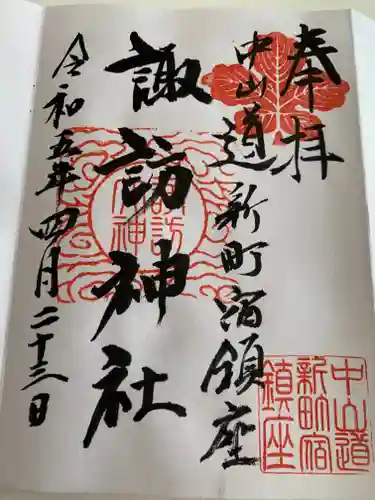 奉拝
中山道新町宿鎮座
諏訪神社
令和五年四月二十三日
諏訪神社
中山道
新町宿
鎮座